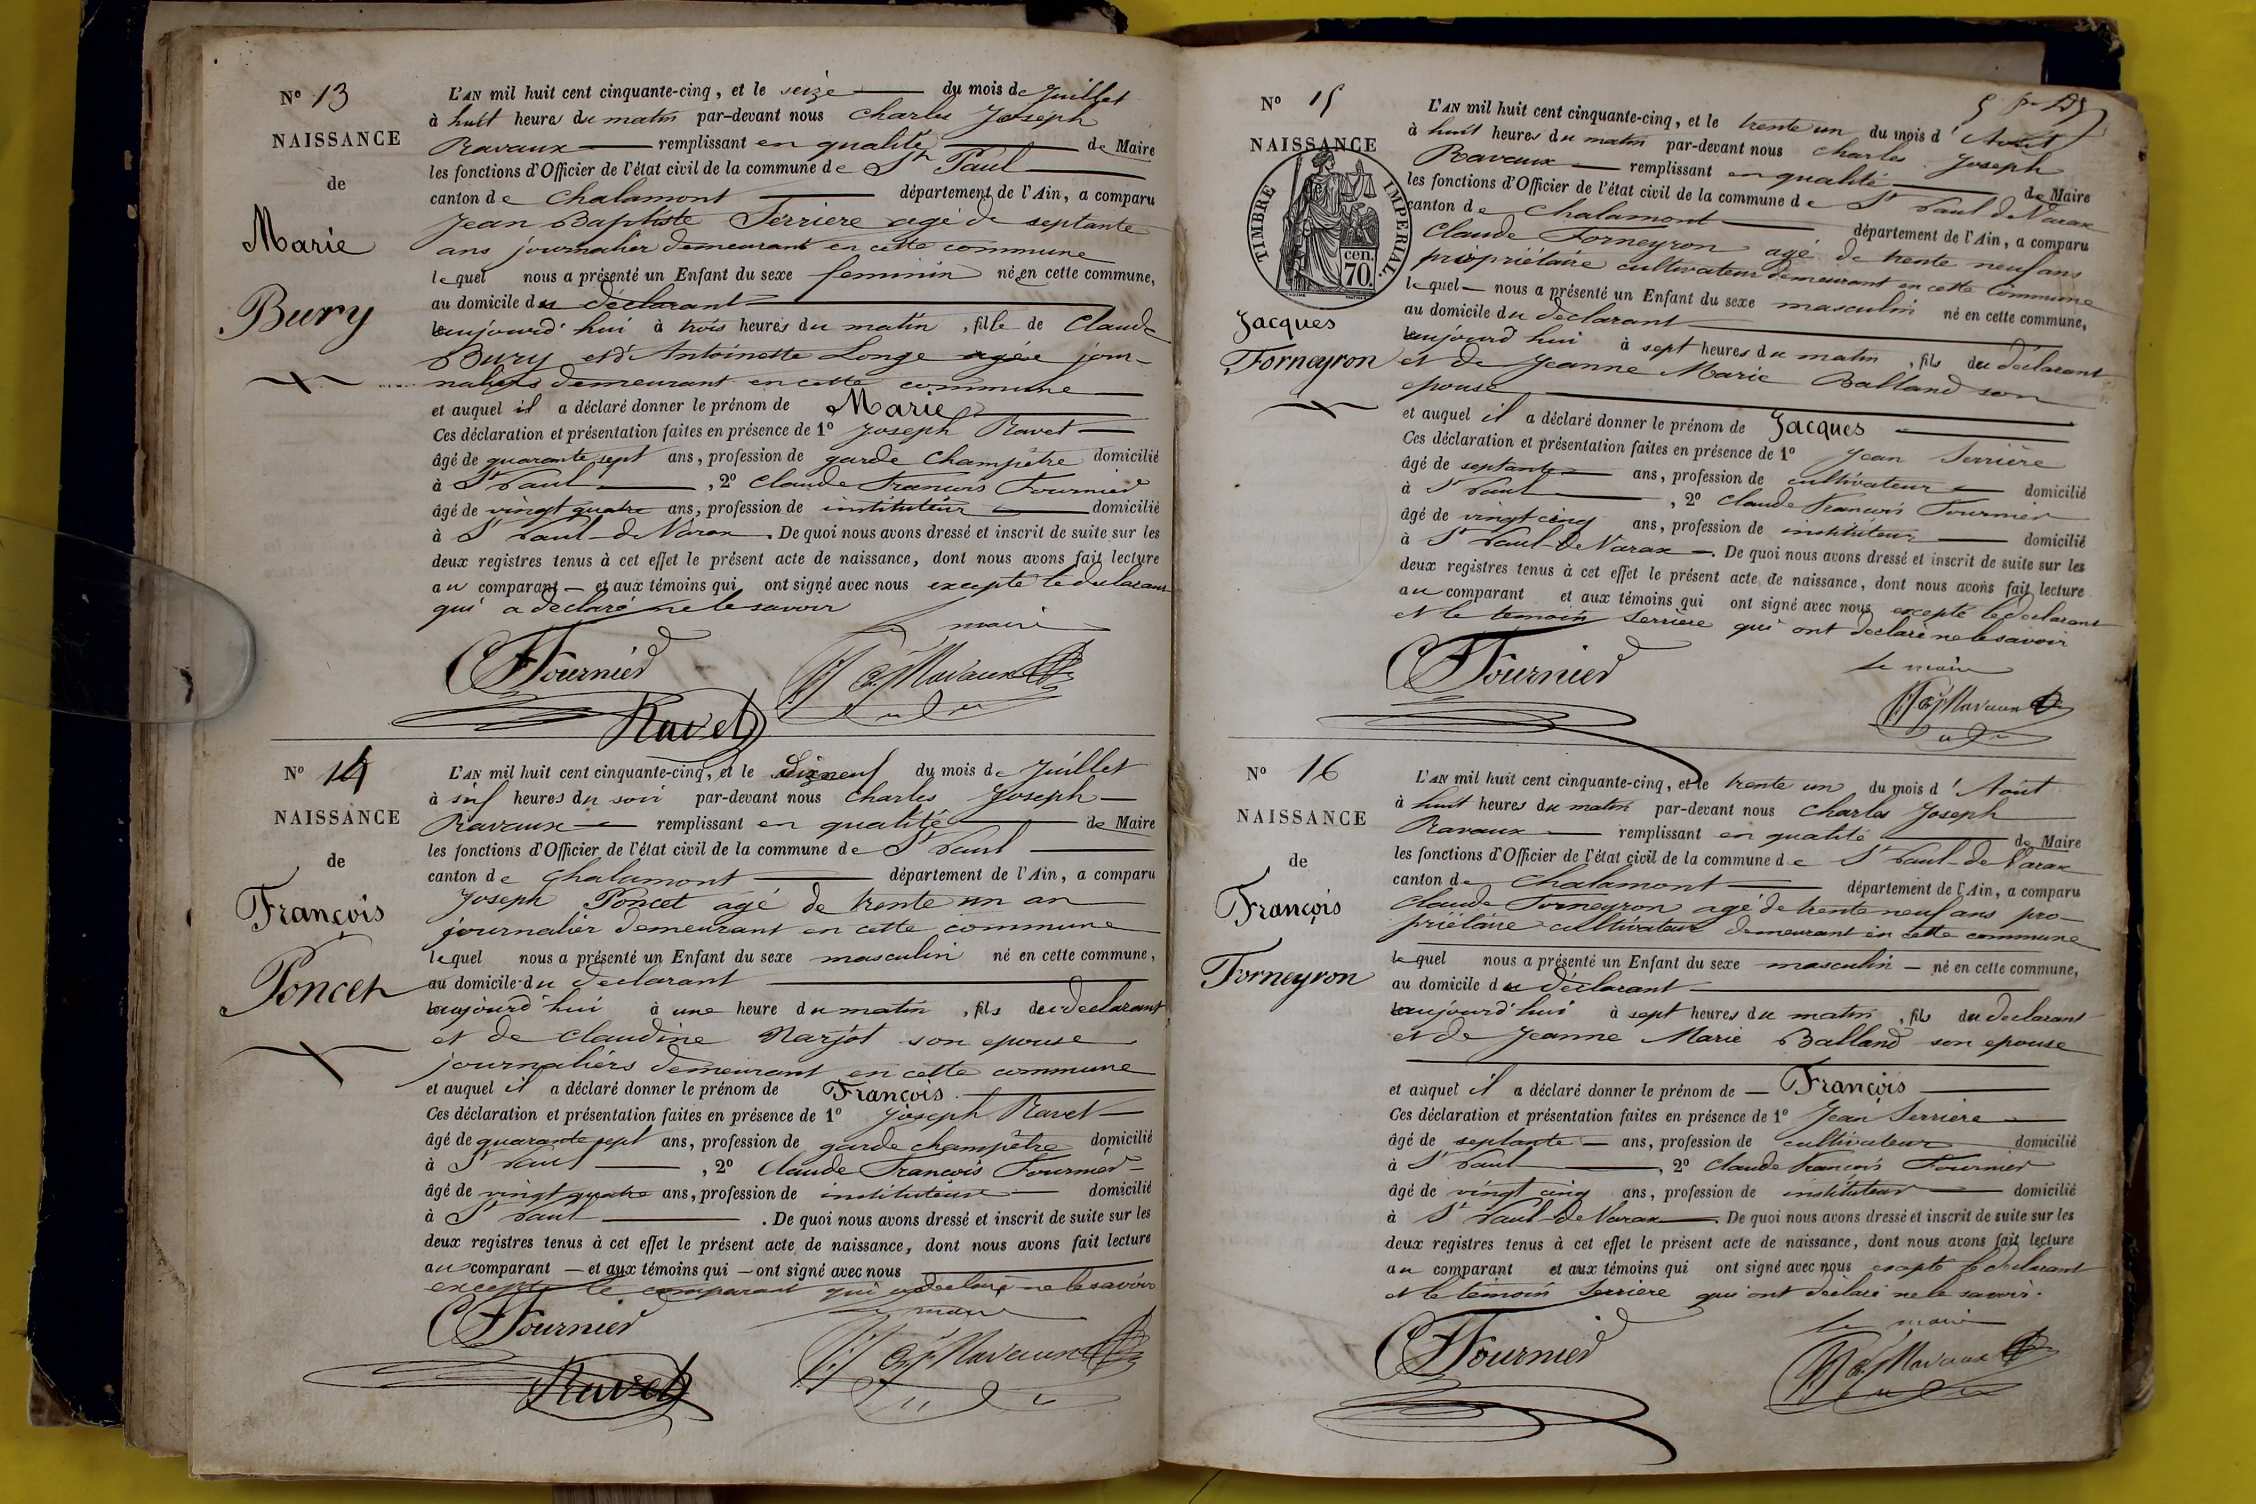 N° 13
NAISSANCE
de
Marie
Bury
L'AN mil huit cent cinquante-cinq, et le seize du mois de Juillet
à huit heures du matin par-devant nous Charles Joseph
Ravaux remplissant en qualité de Maire
les fonctions d'Officier de l'état civil de la commune de St Paul
canton de Chalamont département de l'Ain, a comparu
Jean Baptiste Serriere agé de septante
ans journalier demeurant en cette commune
lequel nous a présenté un Enfant du sexe feminin né en cette commune,
au domicile du déclarant
aujourd'hui à trois heures du matin, fille de Claude
Bury et d'Antoinette Longe agée jour-
naliers demeurant en cette commune
et auquel il a déclaré donner le prénom de Marie
Ces déclaration et présentation faites en présence de 1° Joseph Ravet
âgé de quarante sept ans, profession de garde champêtre domicilié
à St Paul, 2° Claude Francois Fournier
âgé de vingt quatre ans, profession de instituteur domicilié
à St Paul-de Varax. De quoi nous avons dressé et inscrit de suite sur les
deux registres tenus à cet effet le présent acte de naissance, dont nous avons fait lecture
au comparant – et aux témoins qui ont signé avec nous excepté le declarant
qui a declaré ne le savoir
le maire
Fournier
Ravaux
Ravet
N° 14
NAISSANCE
de
François
Poncet
L'AN mil huit cent cinquante-cinq, et le dixneuf du mois de Juillet
à six heures du soir par-devant nous Charles Joseph
Ravaux remplissant en qualité de Maire
les fonctions d'Officier de l'état civil de la commune de St Paul
canton de Chalamont département de l'Ain, a comparu
Joseph Poncet agé de trente un an
journalier demeurant en cette commune
lequel nous a présenté un Enfant du sexe masculin né en cette commune,
au domicile du declarant
aujourd'hui à une heure du matin, fils du declarant
et de Claudine Narjot son epouse
journaliers demeurant en cette commune
et auquel il a déclaré donner le prénom de François
Ces déclaration et présentation faites en présence de 1° Joseph Ravet
âgé de quarante sept ans, profession de garde champêtre domicilié
à St Paul, 2° Claude Francois Fournier
âgé de vingt quatre ans, profession de instituteur domicilié
à St Paul. De quoi nous avons dressé et inscrit de suite sur les
deux registres tenus à cet effet le présent acte de naissance, dont nous avons fait lecture
au comparant – et aux témoins qui – ont signé avec nous
excepté le comparant qui a declaré ne le savoir
le maire
Fournier
Ravaux
Ravet
N° 15
NAISSANCE
TIMBRE IMPERIAL.
cen.
70.
Jacques
Forneyron
L'AN mil huit cent cinquante-cinq, et le trente un du mois d'Août
à huit heures du matin par-devant nous Charles Joseph
Ravaux remplissant en qualité de Maire
les fonctions d'Officier de l'état civil de la commune de St Paul de Varax
canton de Chalamont département de l'Ain, a comparu
Claude Forneyron agé de trente neuf ans
propriétaire cultivateur demeurant en cette commune
lequel – nous a présenté un Enfant du sexe masculin né en cette commune,
au domicile du declarant
aujourd'hui à sept heures du matin, fils du déclarant
et de Jeanne Marie Balland son
epouse
et auquel il a déclaré donner le prénom de Jacques
Ces déclaration et présentation faites en présence de 1° Jean Serrière
âgé de septante ans, profession de cultivateur domicilié
à St Paul, 2° Claude Francois Fournier
âgé de vingt cinq ans, profession de instituteur domicilié
à St Paul-de Varax. De quoi nous avons dressé et inscrit de suite sur les
deux registres tenus à cet effet le présent acte de naissance, dont nous avons fait lecture
au comparant et aux témoins qui ont signé avec nous excepté le declarant
et le temoin Serrière qui ont declaré ne le savoir
le maire
Fournier
Ravaux
N° 16
NAISSANCE
de
François
Forneyron
L'AN mil huit cent cinquante-cinq, et le trente un du mois d'Aout
à huit heures du matin par-devant nous Charles Joseph
Ravaux remplissant en qualité de Maire
les fonctions d'Officier de l'état civil de la commune de St Paul-de Varax
canton de Chalamont département de l'Ain, a comparu
Claude Forneyron agé de trente neuf ans pro-
priétaire cultivateur demeurant en cette commune
lequel nous a présenté un Enfant du sexe masculin – né en cette commune,
au domicile du déclarant
aujourd'hui à sept heures du matin, fils du declarant
et de Jeanne Marie Balland son epouse
et auquel il a déclaré donner le prénom de – François
Ces déclaration et présentation faites en présence de 1° Jean Serriere
âgé de septante – ans, profession de cultivateur domicilié
à St Paul, 2° Claude Francois Fournier
âgé de vingt cinq ans, profession de instituteur domicilié
à St Paul-de Varax. De quoi nous avons dressé et inscrit de suite sur les
deux registres tenus à cet effet le présent acte de naissance, dont nous avons fait lecture
au comparant et aux témoins qui ont signé avec nous excepté le declarant
et le témoin Serriere qui ont déclaré ne le savoir.
le maire
Fournier
Ravaux